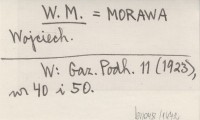 W. M. = MORAWA
Wojciech.
W: Gaz. Podh. 11 (1923),
nr 40 i 50.